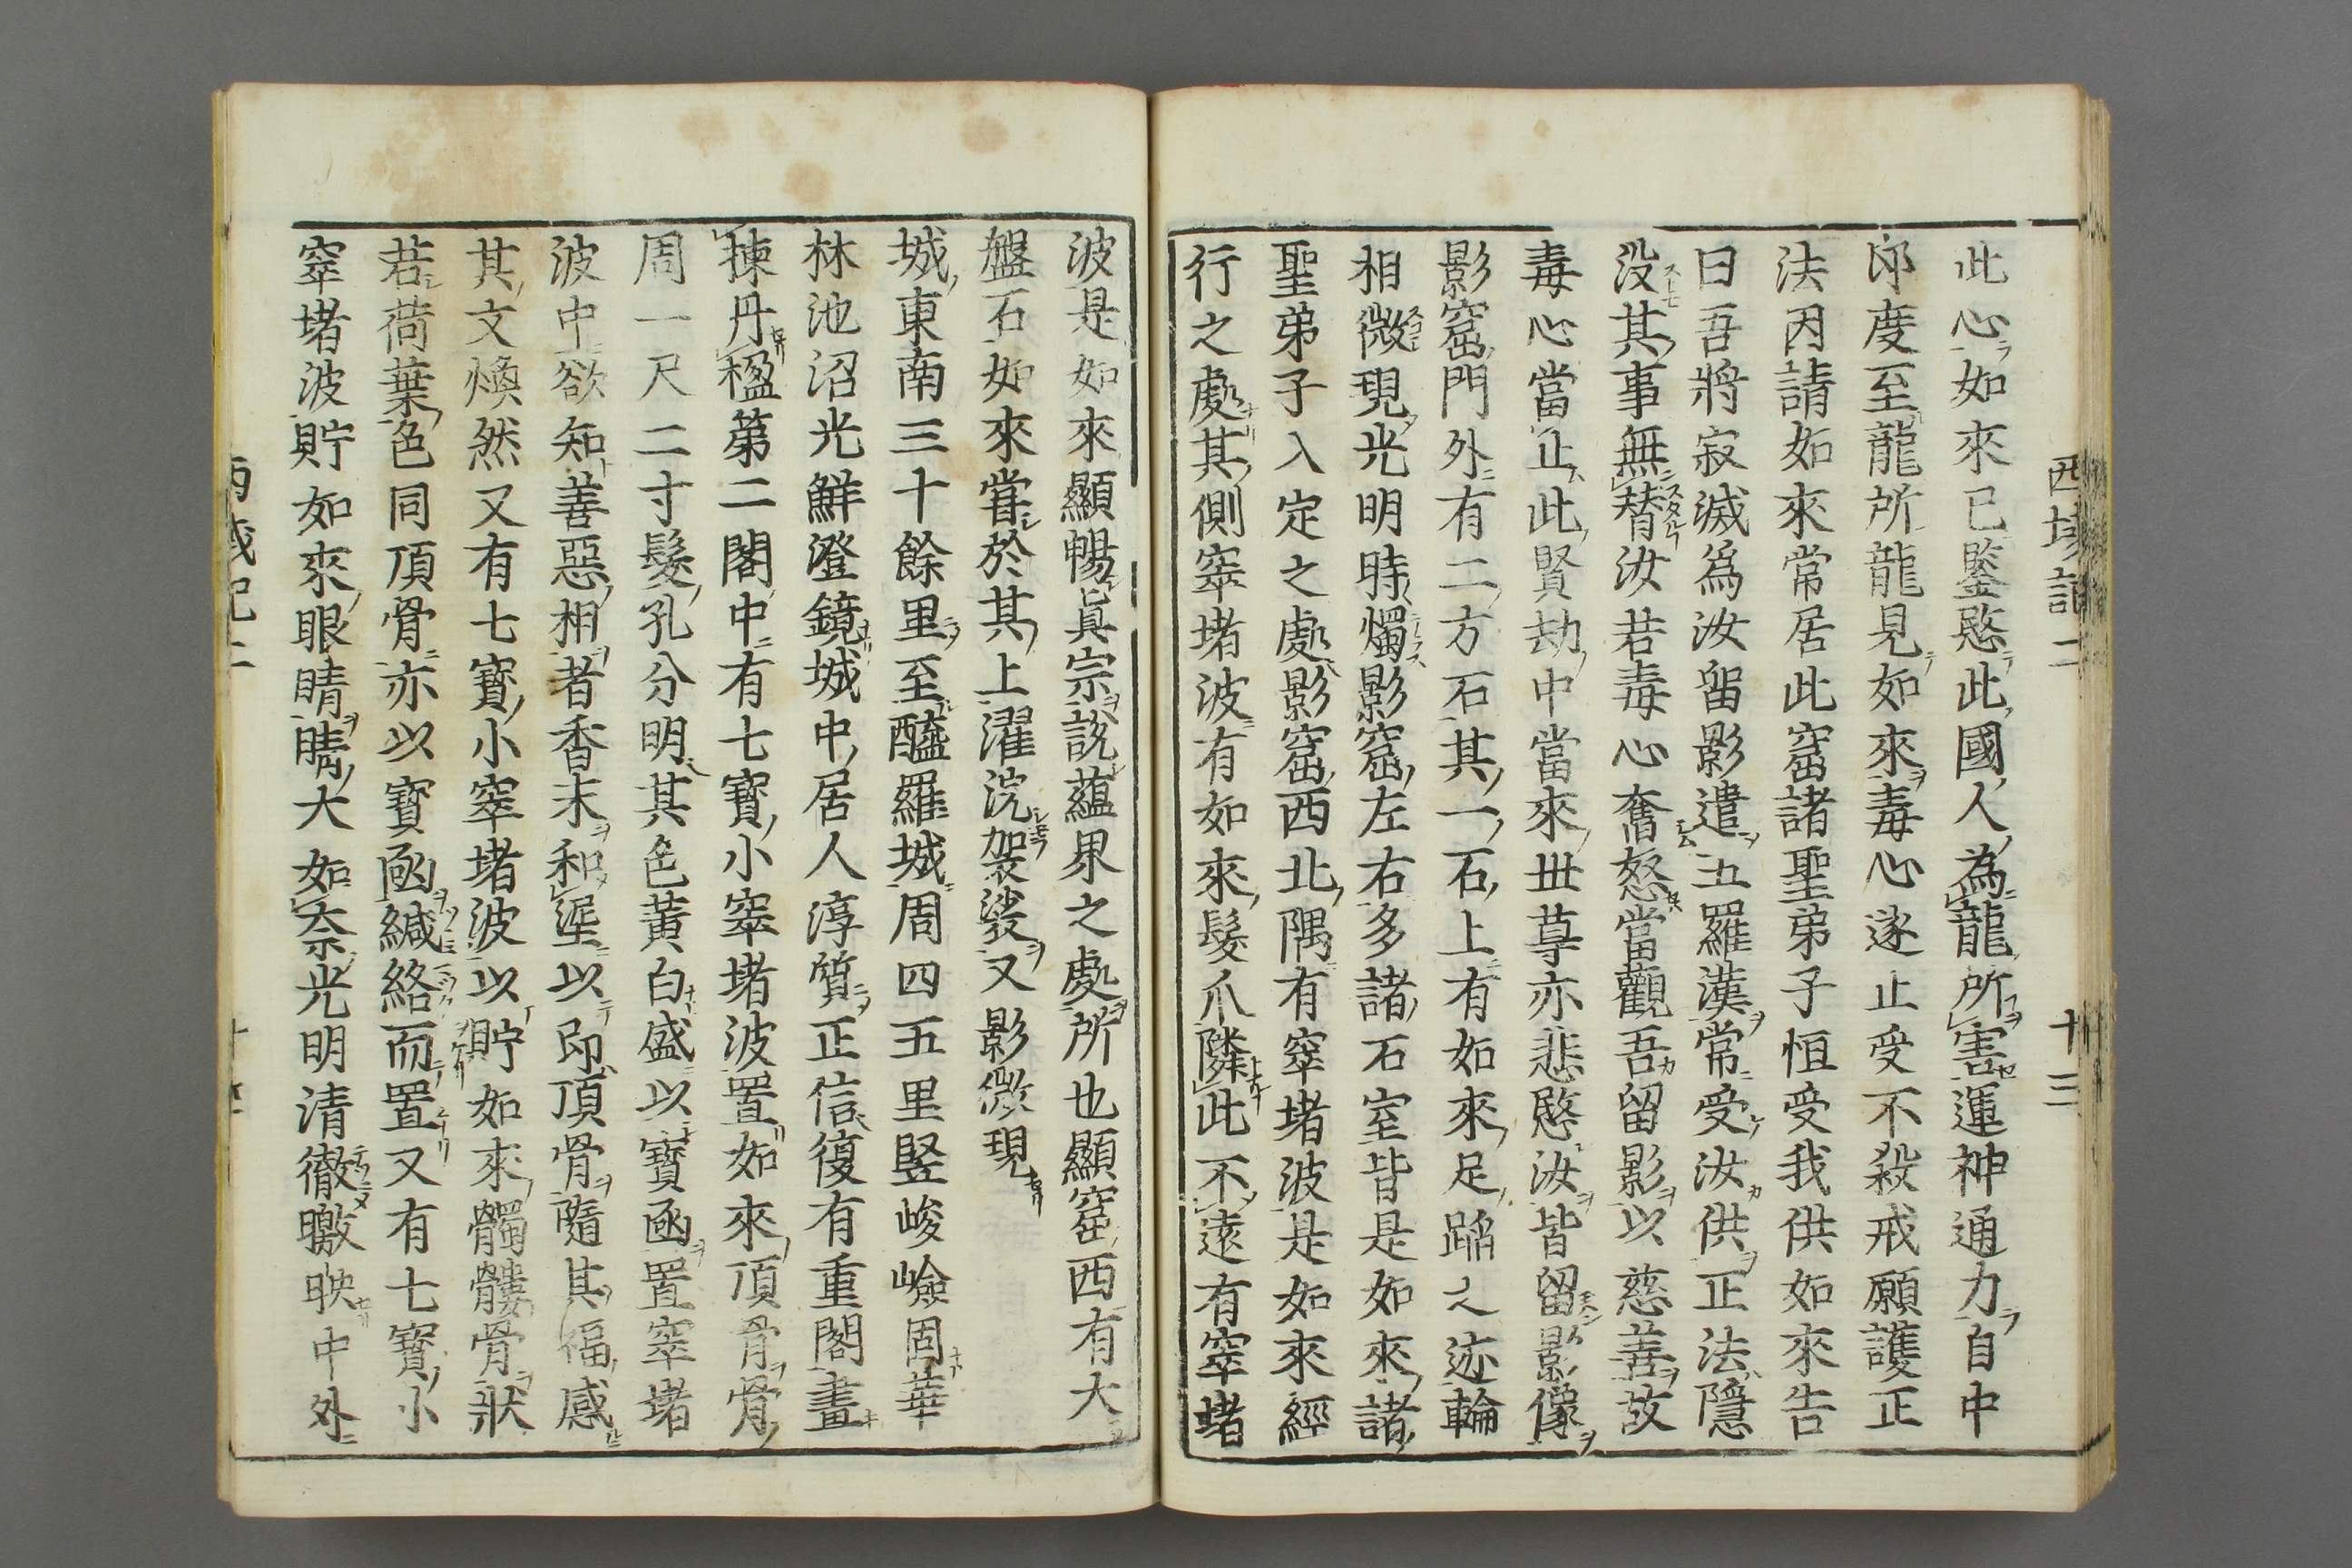 西域記二　十三
此心如來已鑒愍此國人為龍所害運神通力自中
印度至龍所龍見如來毒心遂止受不殺戒願護正
法因請如來常居此窟諸聖弟子恒受我供如來告
曰吾將寂滅爲汝留影遣五羅漢常受汝供正法隱
没其事無替汝若毒心奮怒當觀吾留影以慈善故
毒心當止此賢劫中當來世尊亦悲愍汝皆留影像
影窟門外有二方石其一石上有如來足蹈之迹輪
相微現光明時燭影窟左右多諸石室皆是如來諸
聖弟子入定之處影窟西北隅有窣堵波是如來經
行之處其側窣堵波有如來髮爪隣此不遠有窣堵
波是如來顯暢眞宗說蘊界之處所也顯窟西有大
盤石如來甞於其上濯浣袈裟又影微現
城東南三十餘里至醯羅城周四五里竪峻嶮固華
林池沼光鮮澄鏡城中居人淳質正信復有重閣畫
揀丹楹第二閣中有七寶小窣堵波置如來頂骨骨
周一尺二寸髮孔分明其色黃白盛以寶函置窣堵
波中欲知善惡相者香末和埿以印頂骨隨其福感
其文煥然又有七寶小窣堵波以貯如來髑髏骨狀
若荷葉色同頂骨亦以寶函緘絡而置又有七寶小
窣堵波貯如來眼睛睛大如奈光明清徹曒映中外
西域記二